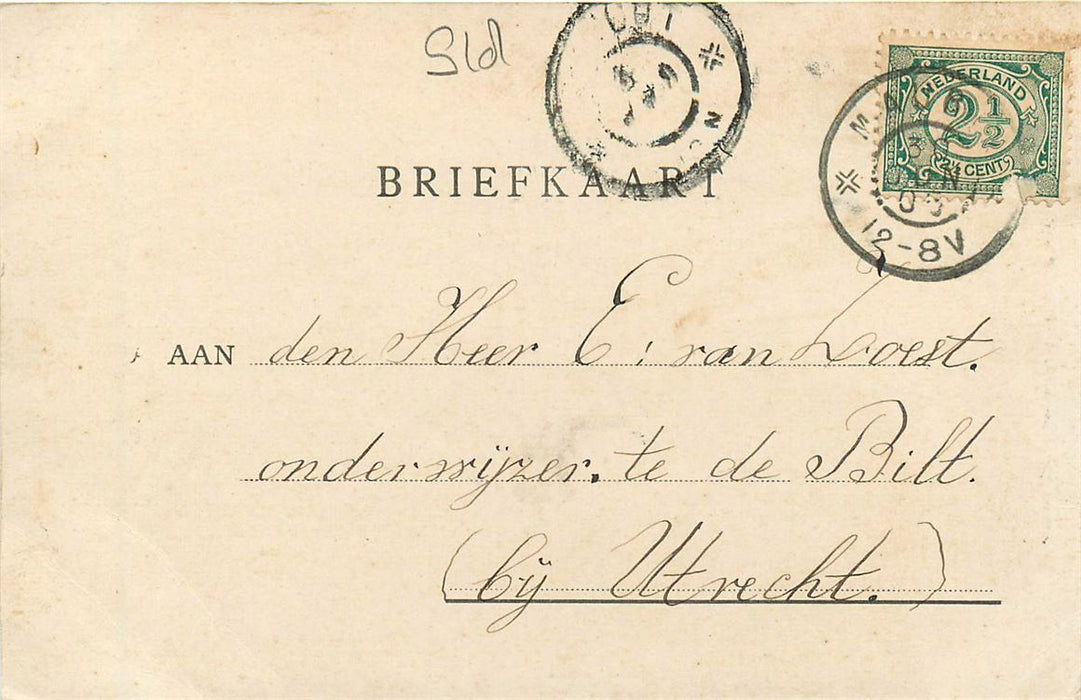 Sld
BRIEFKAART
NEDERLAND
2½
2½ CENT
12-8V
AAN den Heer E: van Zoest.
onderwijzer. te de Bilt.
(bij Utrecht.)